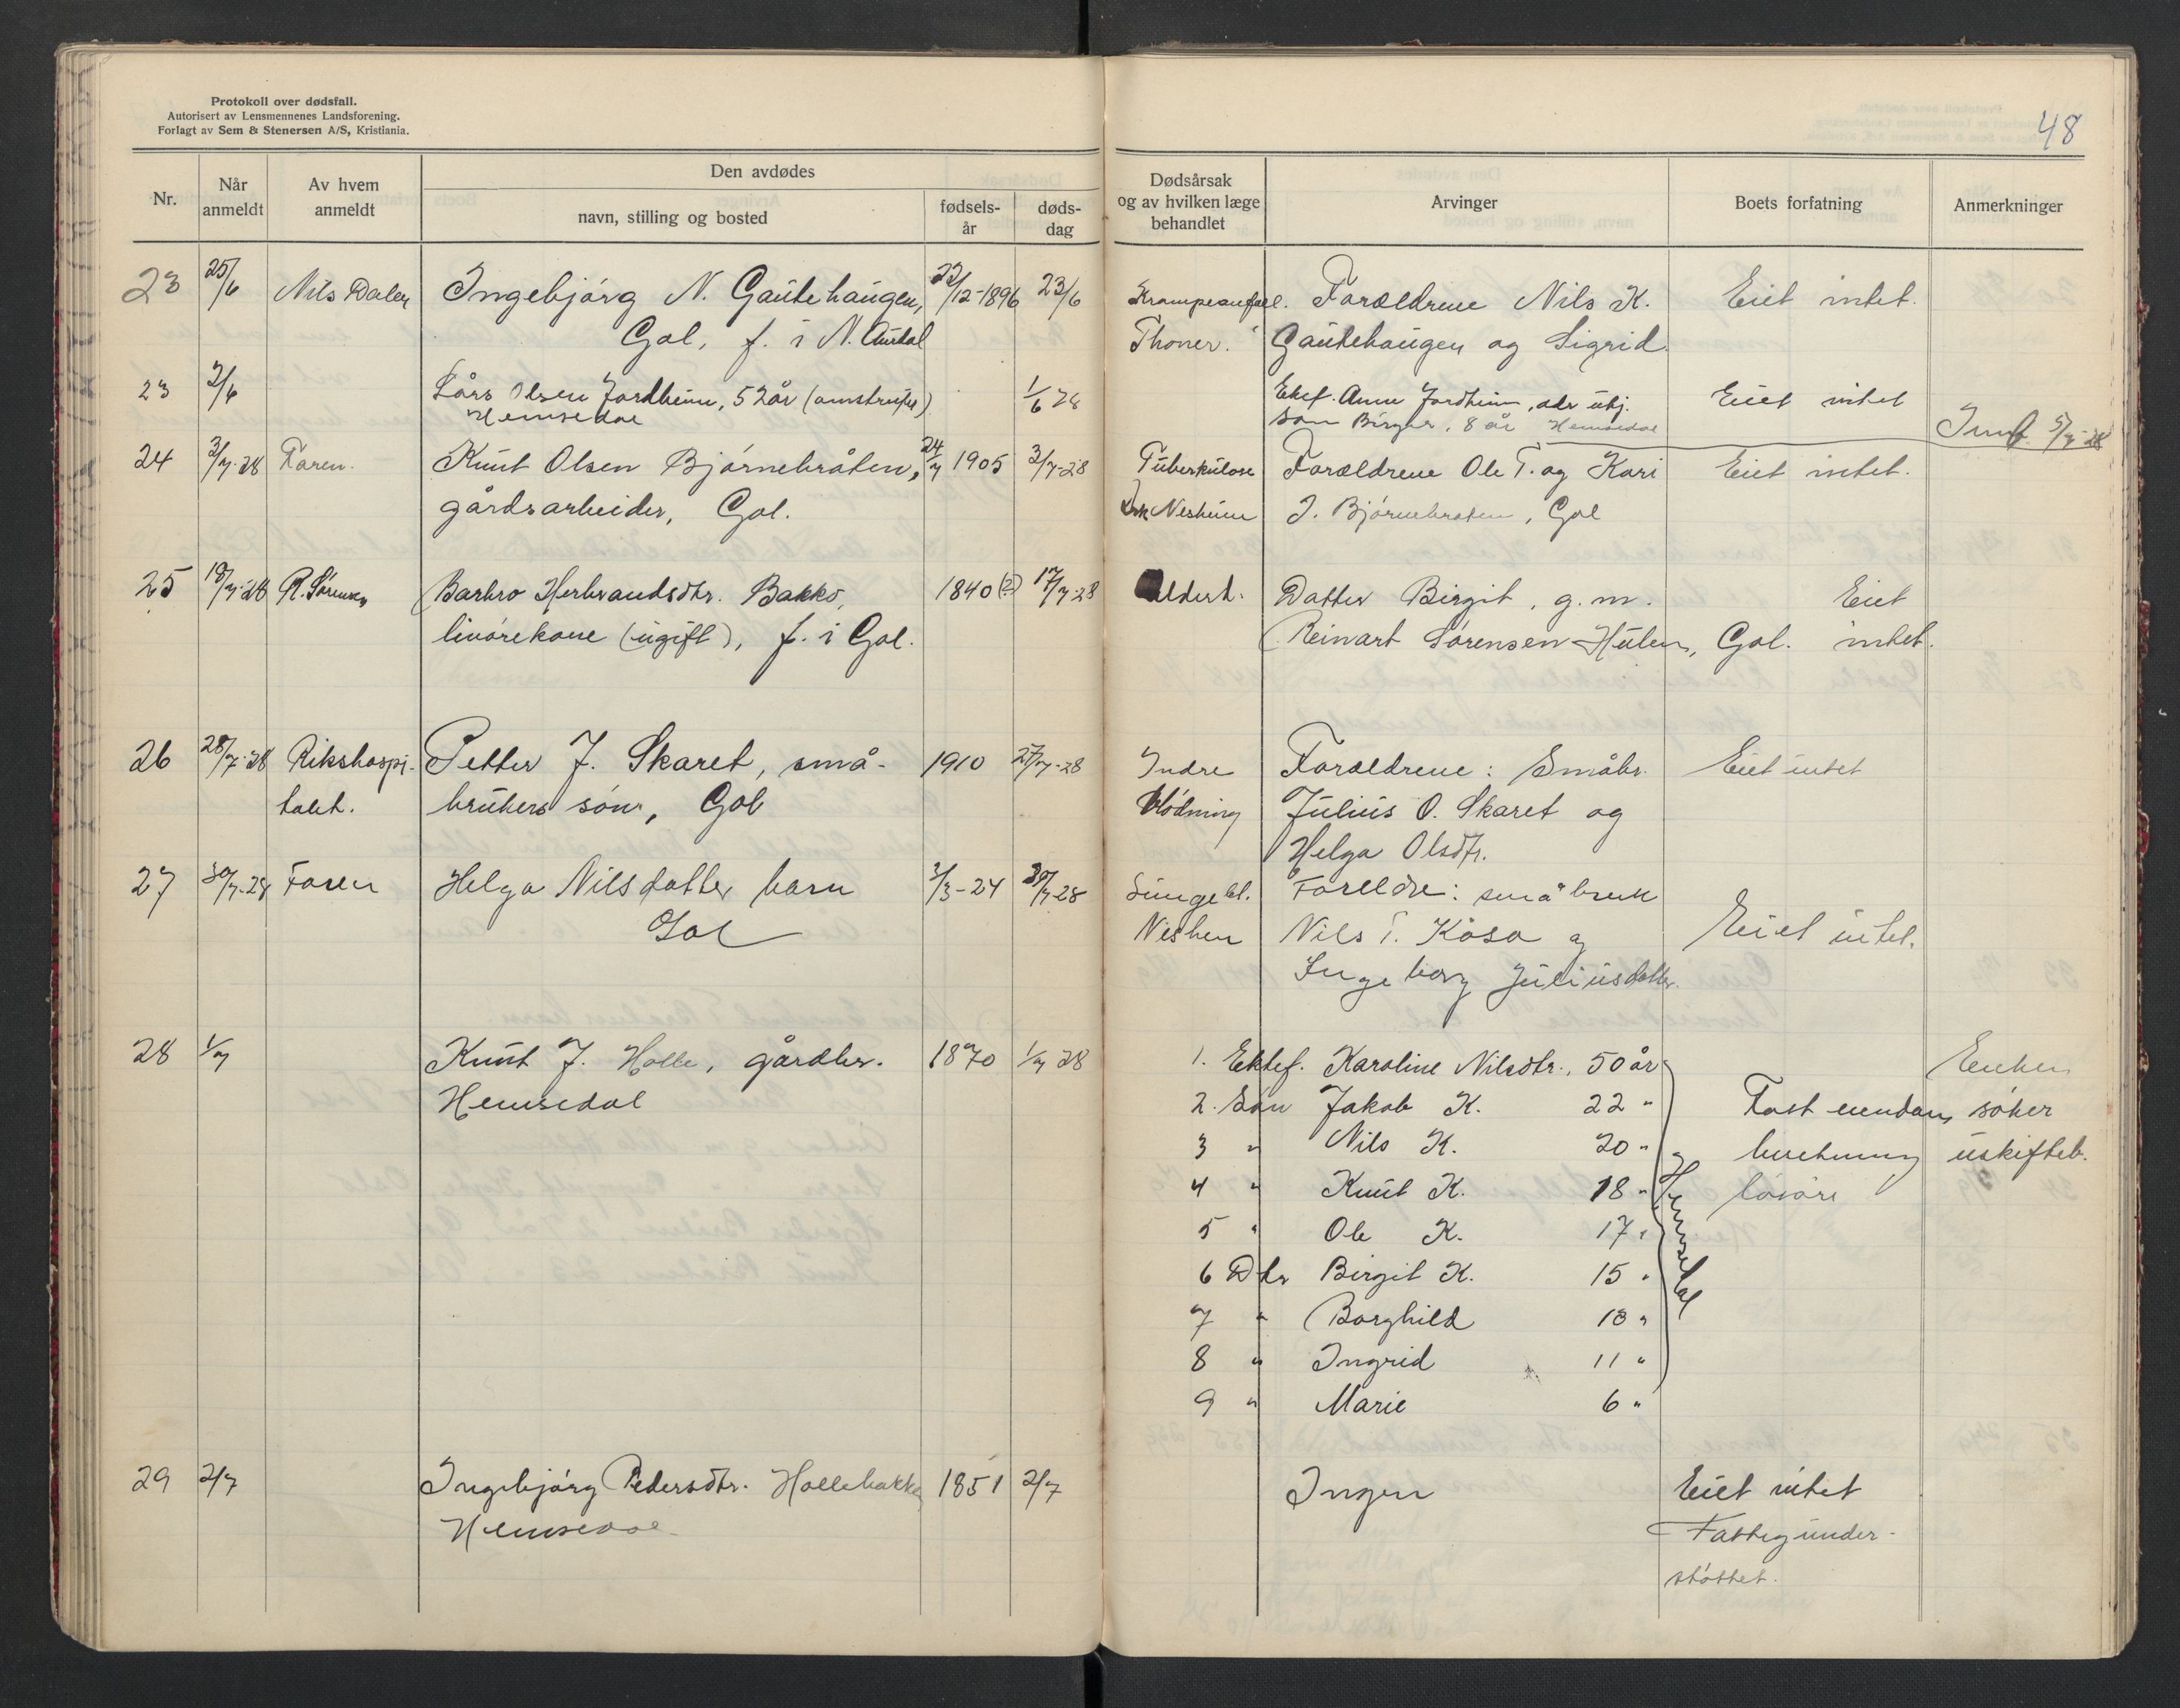 Protokoll over dødsfall.
Autorisert av Lensmennenes Landsforening.
Forlagt av Sem & Stenersen A/S, Kristiania.
48
Nr.
Når anmeldt
Av hvem anmeldt
Den avdødes
navn, stilling og bosted
fødsels-år
døds-dag
Dødsårsak og av hvilken læge behandlet
Arvinger
Boets forfatning
Anmerkninger
23 25/6 Nils Dalen Ingebjørg N. Gautehaugen, 22/12-1896 23/6 Krampeanfall. Forældrene Nils K. Eiet intet.
Gol, f. i N. Aurdal Thoner. Gautehaugen og Sigrid.
23 2/6 Lars Olsen Jordheim, 52 år 1/6 28 Ektef. Anne Jordheim, Eiet intet
Hemsedal son Birger, 8 år Hemsedal 5/7-28
24 3/7-28 Faren. Knut Olsen Bjørnebråten, 24/7 1905 3/7-28 Tuberkulose Forældrene Ole T. og Kari Eiet intet.
gårdsarbeider, Gol. Nesheim J. Bjørnebraten, Gol
25 18/7-28 R. Sørensen Barbro Herbrandsdtr. Bakko, 1840(?) 17/7-28 Alderd. Datter Birgit, g.m. Eiet
livørekone (ugift), f. i Gol. Reinart Sørensen Hulen, Gol. intet.
26 28/7-28 Rikshospi- Petter J. Skaret, små- 1910 27/7-28 Indre Forældrene: Småbr. Eiet intet
talet. brukers søn, Gol blødning Julius O. Skaret og
Helga Olsdtr.
27 30/7-28 Faren Helga Nilsdatter barn 3/3-24 30/7-28 Lungebet. Foreldre: småbruk
Gol Nils T. Kåsa og Eiet intet.
Ingeborg Juliusdatter.
28 1/7 Knut J. Holle, gårdbr. 1870 1/7 28 1. Ektef. Karoline Nilsdtr., 50 år Enken
Hemsedal 2. Søn Jakob K. 22 " Fast eiendom søker
3 " Nils K. 20 " og besetning uskifteb.
4 " Knut K. 18 " løsøre
5 " Ole K. 17 "
6 Dtr Birgit K. 15 "
7 " Borghild 13 "
8 " Ingrid 11 "
9 " Marie 6 "
Hemsedal
29 2/7 Ingebjørg Pedersdtr. Hollebakken 1851 2/7 Ingen Eiet intet
Hemsedal Fattigunder-
støttet.